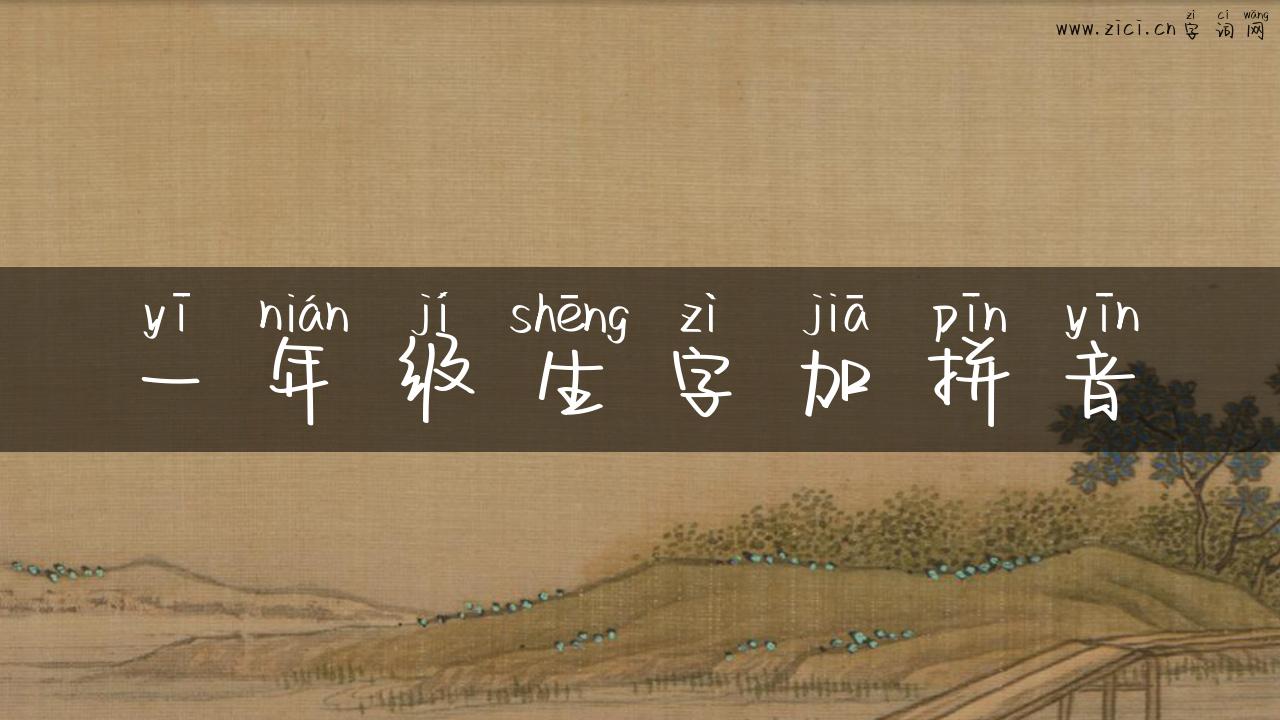 zì cí wǎng
www.zici.cn字词网
yī nián jí shēng zì jiā pīn yīn
一年级生字加拼音